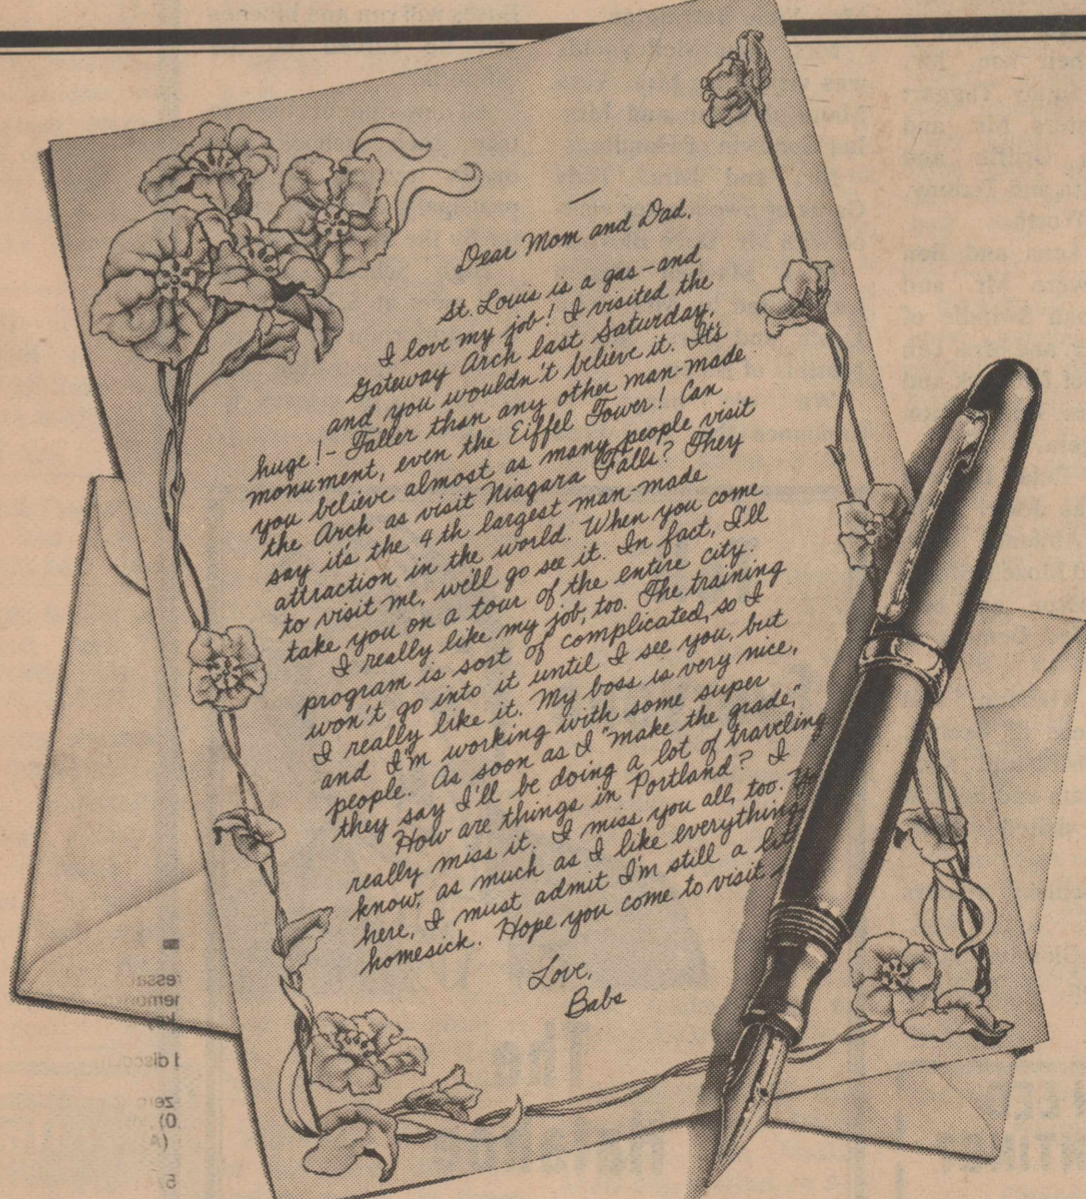 Dear Mom and Dad,
St. Louis is a gas-and
I love my job! I visited the
Gateway Arch last Saturday,
and you wouldn't believe it. It's
huge!-Taller than any other man-made
monument, even the Eiffel Tower! Can
you believe almost as many people visit
the Arch as visit Niagara Falls? They
say it's the 4th largest man-made
attraction in the world. When you come
to visit me, we'll go see it. In fact, I'll
take you on a tour of the entire city.
I really like my job, too. The training
program is sort of complicated, so I
won't go into it until I see you, but
I really like it. My boss is very nice,
and I'm working with some super
people. As soon as I "make the grade,"
they say I'll be doing a lot of traveling
How are things in Portland? I
really miss it. I miss you all, too.
know, as much as I like everything
here, I must admit I'm still a
homesick. Hope you come to visit
Love,
Babs